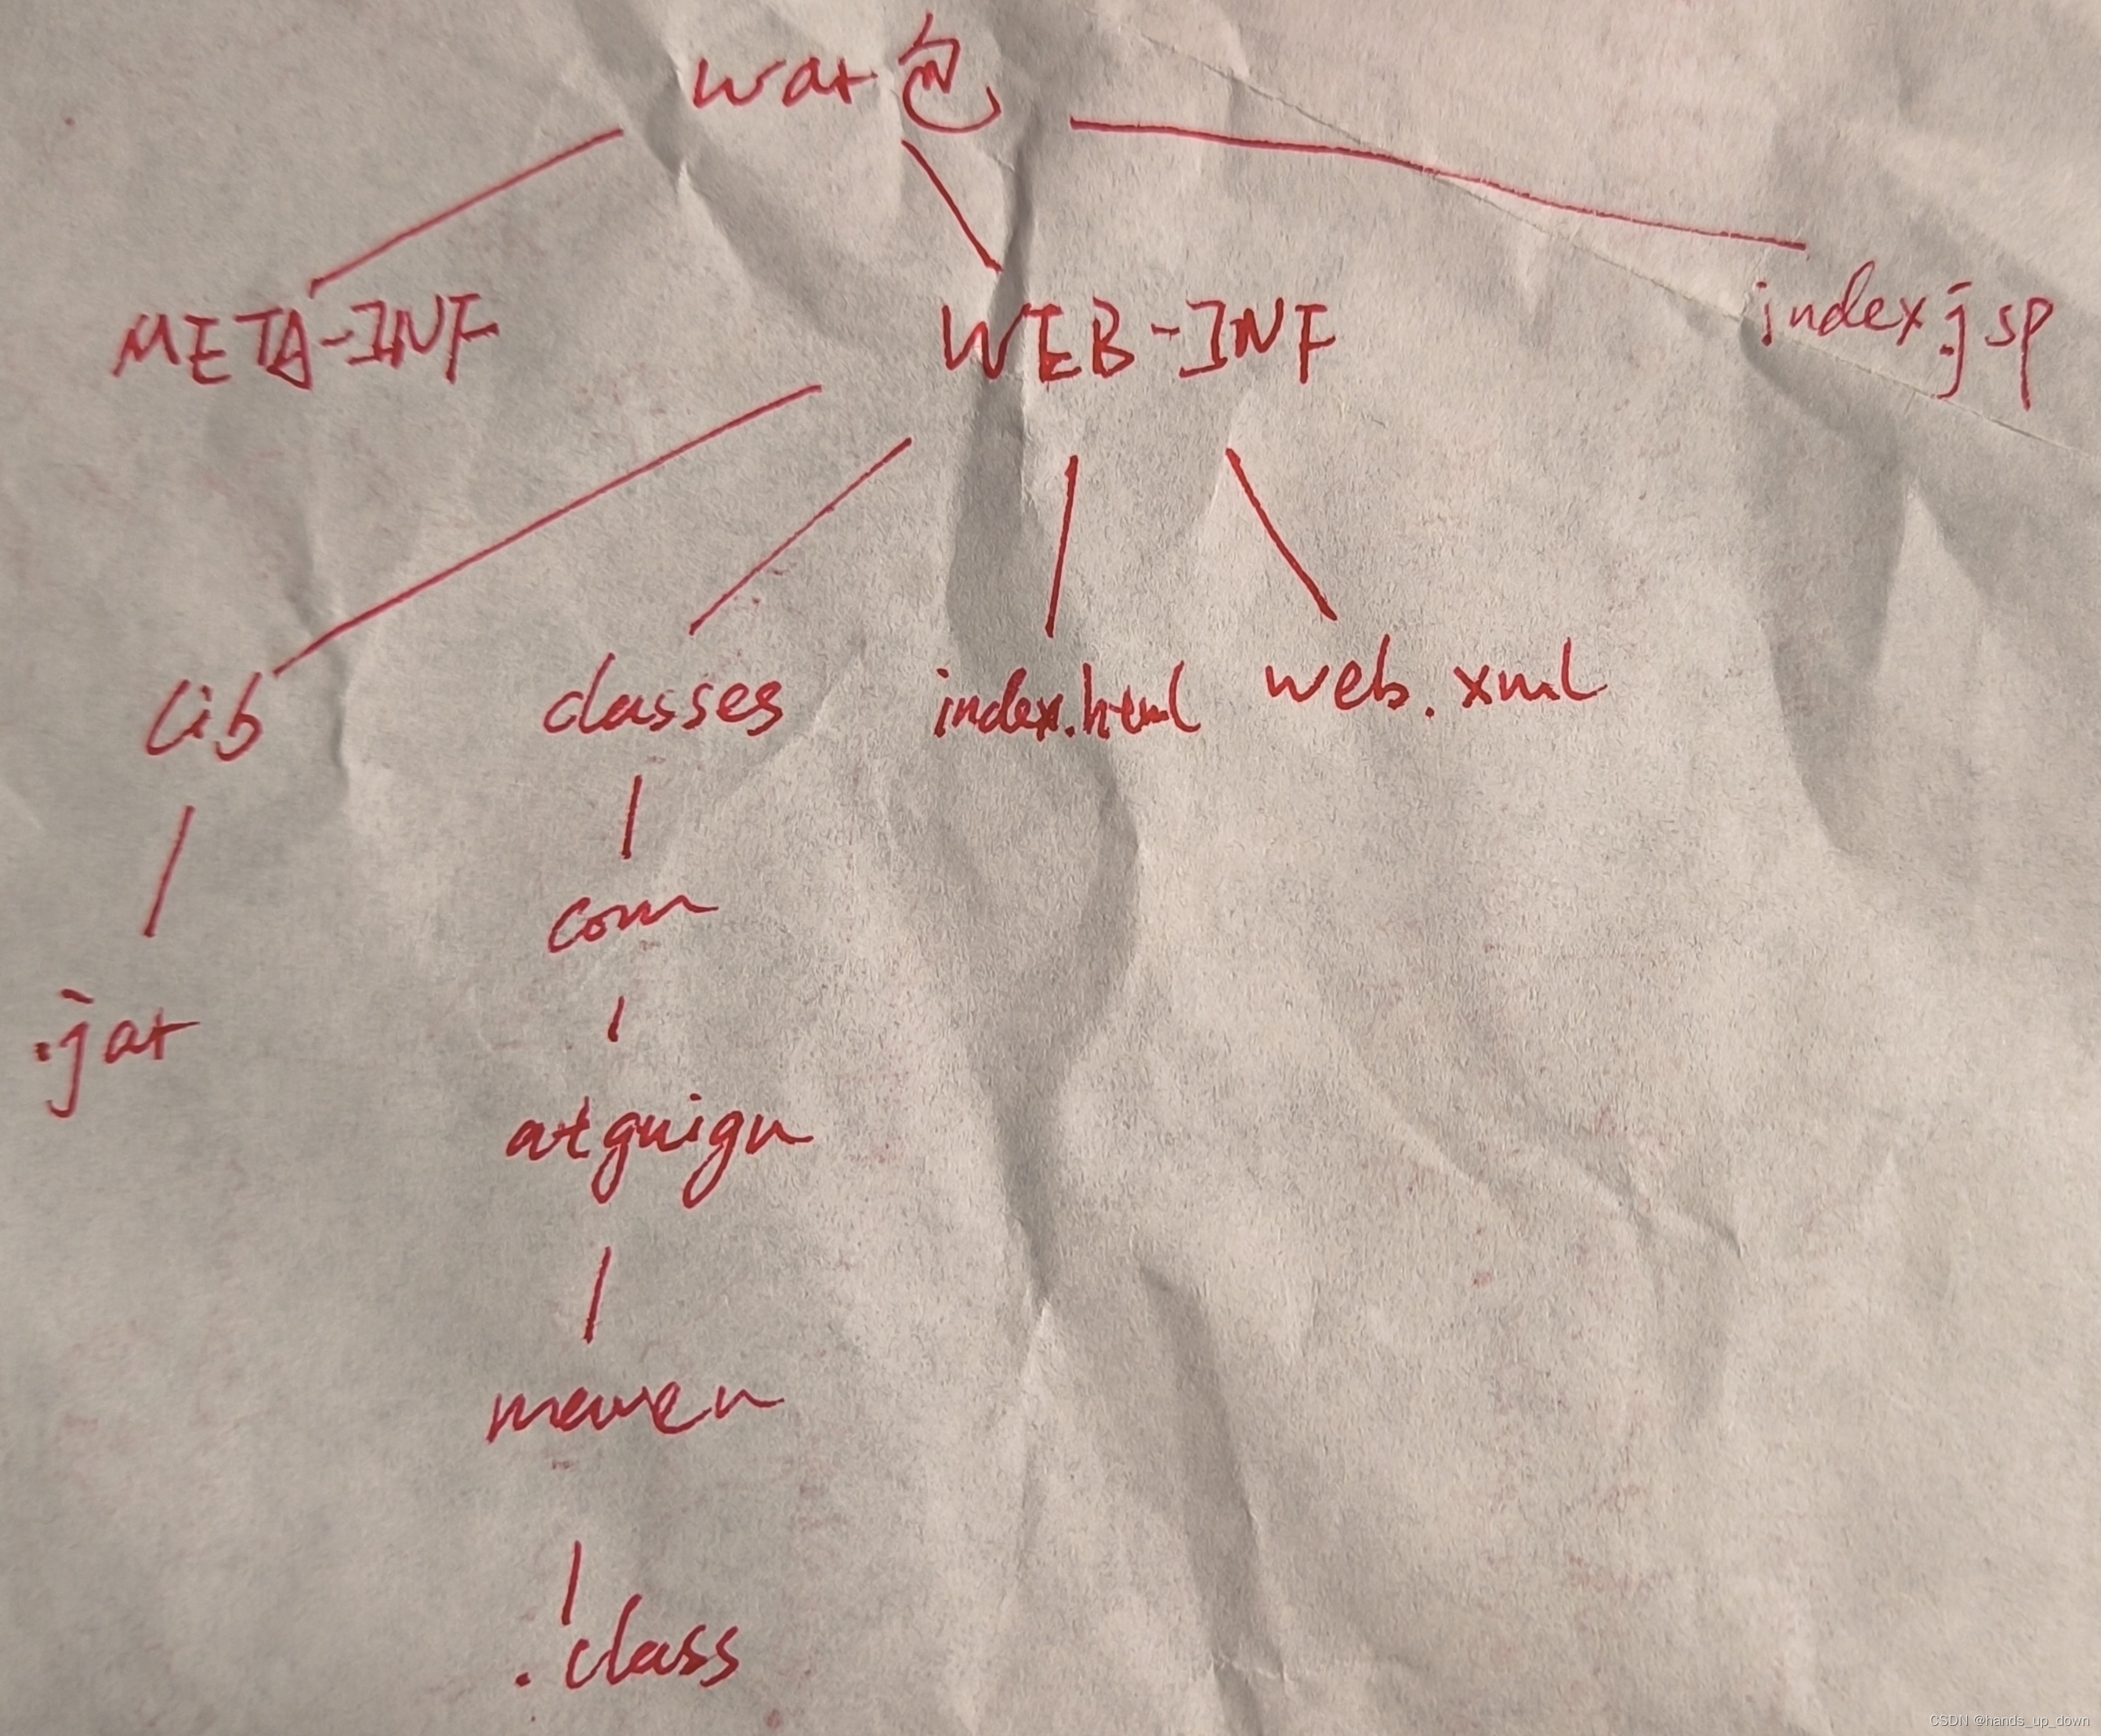 war包
META-INF
WEB-INF
index.jsp
lib
classes
index.html
web.xml
com
.jar
atguigu
maven
.class
CSDN @hands_up_down